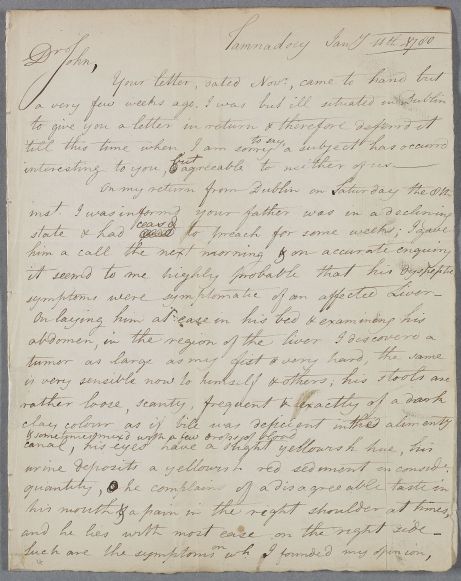 Tamnadoey Jany 11th 1800
Dr John,
Your letter, dated Novr, came to hand but
a very few weeks ago. I was but ill situated in Dublin
to give you a letter in return & therefore deferrd it
till this time when, I am sorry to say, a subject has occurrd
interesting to you, but agreeable to neither of us—
On my return from Dublin on Saturday the
inst I was informd your father was in a declining
state & had ceasd to preach for some weeks; I gave
him a call the next morning & on accurate enquiry
it seemd to me highly probable that his dyspeptic
symptoms were symptomatic of an affected Liver—
On laying him at ease in his bed & examining his
abdomen, in the region of the liver I discoverd a
tumor as large as my fist & very hard, the same
is very sensible now to himself & others; his stools are
rather loose, scanty, frequent & exactly of a dark
clay colour as if bile was deficient in the alimenty
& sometimes mixd with a few drops of blood
canal, his eyes have a bright yellowish hue, his
urine deposits a yellowish red sediment in considr.
quantity, & he complains of a disagreeable taste in
his mouth & a pain in the right shoulder at times,
and he lies with most ease on the right side—
Such are the symptoms on wh I founded my opinion,